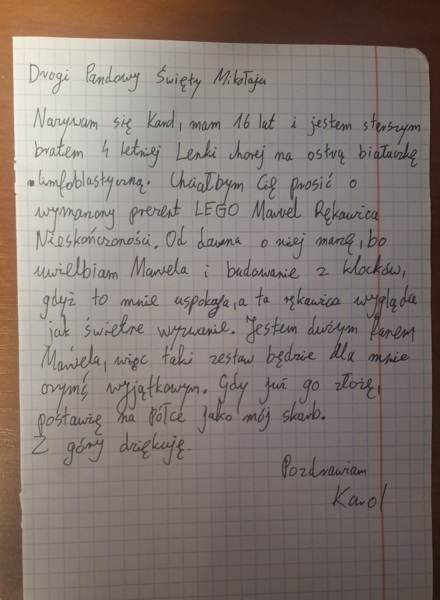 Drogi Pandowy Święty Mikołaju
Nazywam się Karol, mam 16 lat i jestem starszym
bratem 4 letniej Lenki chorej na ostrą białaczkę
limfoblastyczną. Chciałbym Cię prosić o
wymarzony prezent LEGO Marvel Rękawica
Nieskończoności. Od dawna o niej marzę, bo
uwielbiam Marvela i budowanie z klocków,
gdyż to mnie uspokaja, a ta rękawica wygląda
jak świetne wyzwanie. Jestem dużym fanem
Marvela, więc taki zestaw będzie dla mnie
czymś wyjątkowym. Gdy już go złożę,
postawię na półce jako mój skarb.
Z góry dziękuję.
Pozdrawiam
Karol